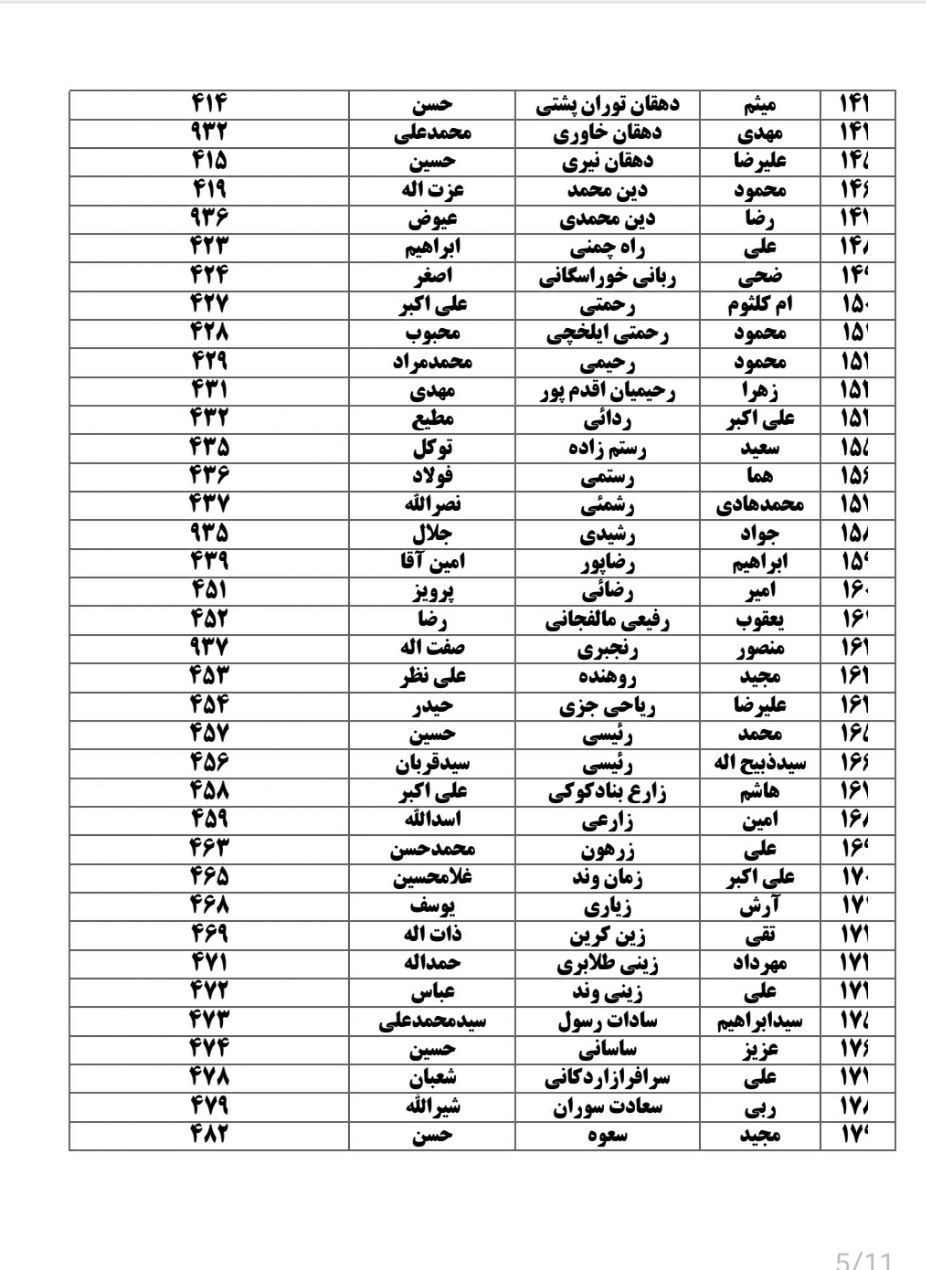 ۱۴۱ میثم دهقان توران پشتی حسن ۴۱۴
۱۴۱ مهدی دهقان خاوری محمدعلی ۹۳۲
۱۴ علیرضا دهقان نیری حسین ۴۱۵
۱۴ محمود دین محمد عزت اله ۴۱۹
۱۴۱ رضا دین محمدی عیوض ۹۳۶
۱۴ علی راه چمنی ابراهیم ۴۲۳
۱۴ ضحی ربانی خوراسگانی اصغر ۴۲۴
۱۵۰ ام کلثوم رحمتی علی اکبر ۴۲۷
۱۵ محمود رحمتی ایلخچی محبوب ۴۲۸
۱۵۱ محمود رحیمی محمدمراد ۴۲۹
۱۵۱ زهرا رحیمیان اقدم پور مهدی ۴۳۱
۱۵۱ علی اکبر ردائی مطیع ۴۳۲
۱۵ سعید رستم زاده توکل ۴۳۵
۱۵ هما رستمی فولاد ۴۳۶
۱۵۱ محمدهادی رشمئی نصرالله ۴۳۷
۱۵ جواد رشیدی جلال ۹۳۵
۱۵ ابراهیم رضاپور امین آقا ۴۳۹
۱۶۰ امیر رضائی پرویز ۴۵۱
۱۶ یعقوب رفیعی مالفجانی رضا ۴۵۲
۱۶۱ منصور رنجبری صفت اله ۹۳۷
۱۶۱ مجید روهنده علی نظر ۴۵۳
۱۶۱ علیرضا ریاحی جزی حیدر ۴۵۴
۱۶ محمد رئیسی حسین ۴۵۷
۱۶ سیدذبیح اله رئیسی سیدقربان ۴۵۶
۱۶۱ هاشم زارع بنادکوکی علی اکبر ۴۵۸
۱۶ امین زارعی اسدالله ۴۵۹
۱۶ علی زرهون محمدحسن ۴۶۳
۱۷۰ علی اکبر زمان وند غلامحسین ۴۶۵
۱۷ آرش زیاری یوسف ۴۶۸
۱۷۱ تقی زین کرین ذات اله ۴۶۹
۱۷۱ مهرداد زینی طلابری حمداله ۴۷۱
۱۷۱ علی زینی وند عباس ۴۷۲
۱۷ سیدابراهیم سادات رسول سیدمحمدعلی ۴۷۳
۱۷ عزیز ساسانی حسین ۴۷۴
۱۷۱ علی سرافرازاردکانی شعبان ۴۷۸
۱۷ ربی سعادت سوران شیرالله ۴۷۹
۱۷ مجید سعوه حسن ۴۸۲
5/11